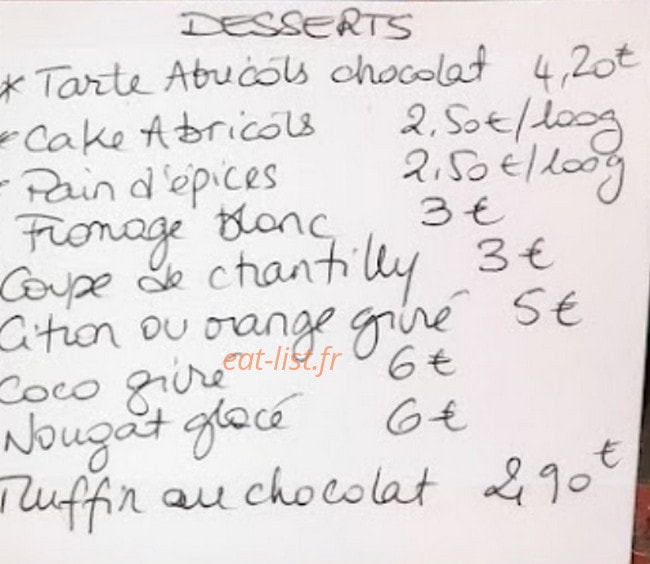 DESSERTS
* Tarte Abricots chocolat 4,20€
Cake Abricots 2,50€/100g
Pain d'épices 2,50€/100g
Fromage blanc 3€
Coupe de chantilly 3€
Citron ou orange givré 5€
eat-list.fr
Coco givré 6€
Nougat glacé 6€
Muffin au chocolat 2,90€